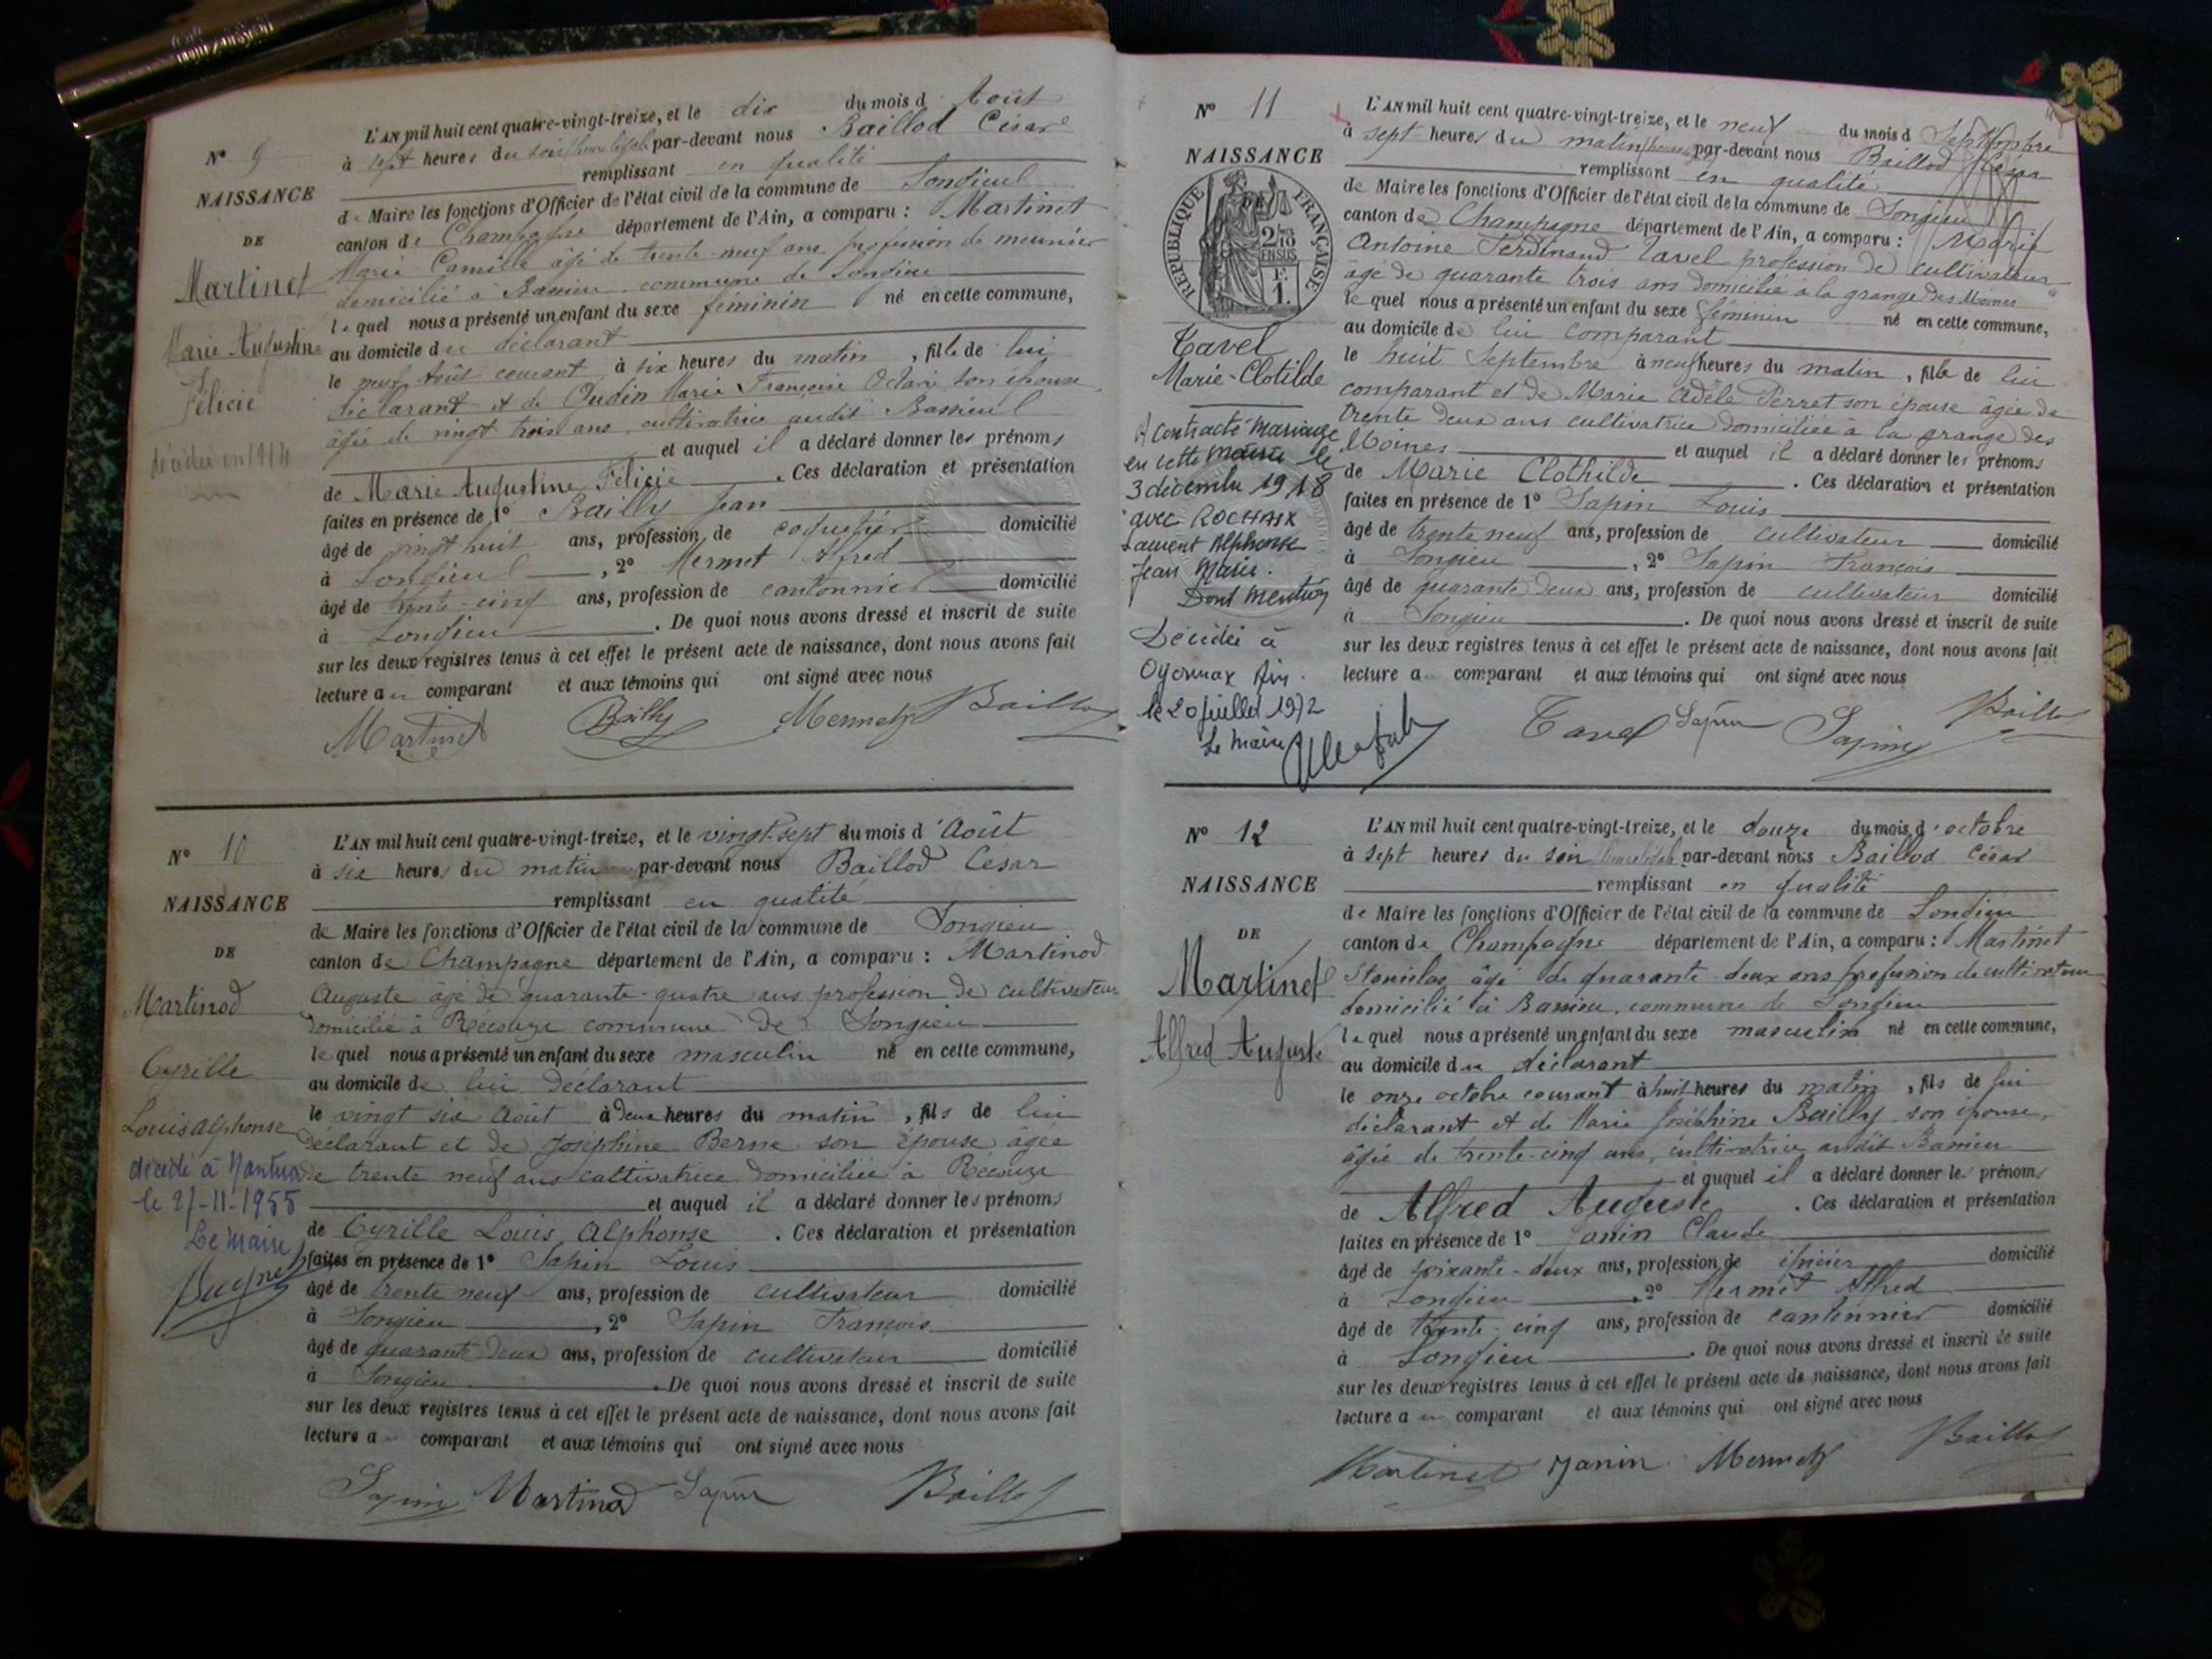 N° 9
NAISSANCE
DE
Martinet
Marie Augustine
Félicie
décédée en 1914
L'AN mil huit cent quatre-vingt-treize, et le dix du mois d Août
à sept heures du soir (heure légale) par-devant nous Baillod César
remplissant en qualité
de Maire les fonctions d'Officier de l'état civil de la commune de Songieu
canton de Champagne département de l'Ain, a comparu : Martinet
Marie Camille âgé de trente-neuf ans profession de meunier
domicilié à Bassieu commune de Songieu
lequel nous a présenté un enfant du sexe féminin né en cette commune,
au domicile du déclarant
le neuf Août courant à six heures du matin, fille de lui
déclarant et de Oudin Marie Françoise Octavie son épouse,
âgée de vingt trois ans, cultivatrice audit Bassieu
et auquel il a déclaré donner les prénoms
de Marie Augustine Félicie. Ces déclaration et présentation
faites en présence de 1° Bailly Jean
âgé de vingt huit ans, profession de coquetier domicilié
à Songieu, 2° Mermet Alfred
âgé de trente-cinq ans, profession de cantonnier domicilié
à Songieu. De quoi nous avons dressé et inscrit de suite
sur les deux registres tenus à cet effet le présent acte de naissance, dont nous avons fait
lecture au comparant et aux témoins qui ont signé avec nous
Martinet Bailly Mermet Baillod
N° 10
NAISSANCE
DE
Martinod
Cyrille
Louis Alphonse
décédé à Nantua
le 27-11-1955
Le Maire
L'AN mil huit cent quatre-vingt-treize, et le vingt-sept du mois d'Août
à six heures du matin par-devant nous Baillod César
remplissant en qualité
de Maire les fonctions d'Officier de l'état civil de la commune de Songieu
canton de Champagne département de l'Ain, a comparu : Martinod
Auguste âgé de quarante-quatre ans profession de cultivateur
domicilié à Récouza commune de Songieu
lequel nous a présenté un enfant du sexe masculin né en cette commune,
au domicile de lui déclarant
le vingt six Août à deux heures du matin, fils de lui
déclarant et de Joséphine Berne son épouse âgée
de trente neuf ans cultivatrice domiciliée à Récouza
et auquel il a déclaré donner les prénoms
de Cyrille Louis Alphonse. Ces déclaration et présentation
faites en présence de 1° Sapin Louis
âgé de trente neuf ans, profession de cultivateur domicilié
à Songieu, 2° Sapin François
âgé de quarante deux ans, profession de cultivateur domicilié
à Songieu. De quoi nous avons dressé et inscrit de suite
sur les deux registres tenus à cet effet le présent acte de naissance, dont nous avons fait
lecture au comparant et aux témoins qui ont signé avec nous
Sapin Martinod Sapin Baillod
N° 11
NAISSANCE
DE
RÉPUBLIQUE FRANÇAISE
Tavel
Marie-Clotilde
A contracté mariage
en cette mairie le
3 décembre 1918
avec ROCHAIX
Laurent Alphonse
Jean Marie.
Dont mention
Décédée à
Oyonnax Ain.
le 20 juillet 1972
Le Maire
L'AN mil huit cent quatre-vingt-treize, et le neuf du mois d Septembre
à sept heures du matin par-devant nous Baillod César
remplissant en qualité
de Maire les fonctions d'Officier de l'état civil de la commune de Songieu
canton de Champagne département de l'Ain, a comparu : Marie
Antoine Ferdinand Tavel profession de cultivateur
âgé de quarante trois ans domicilié à la grange des Moines
lequel nous a présenté un enfant du sexe féminin né en cette commune,
au domicile de lui comparant
le huit Septembre à neuf heures du matin, fille de lui
comparant et de Marie Adèle Perret son épouse âgée de
trente deux ans cultivatrice domiciliée à la grange des
Moines et auquel il a déclaré donner les prénoms
de Marie Clothilde. Ces déclaration et présentation
faites en présence de 1° Sapin Louis
âgé de trente neuf ans, profession de cultivateur domicilié
à Songieu, 2° Sapin François
âgé de quarante deux ans, profession de cultivateur domicilié
à Songieu. De quoi nous avons dressé et inscrit de suite
sur les deux registres tenus à cet effet le présent acte de naissance, dont nous avons fait
lecture au comparant et aux témoins qui ont signé avec nous
Tavel Sapin Sapin Baillod
N° 12
NAISSANCE
DE
Martinet
Alfred Auguste
L'AN mil huit cent quatre-vingt-treize, et le douze du mois d'octobre
à sept heures du soir (heure légale) par-devant nous Baillod César
remplissant en qualité
de Maire les fonctions d'Officier de l'état civil de la commune de Songieu
canton de Champagne département de l'Ain, a comparu : Martinet
Stanislas âgé de quarante-deux ans profession de cultivateur
domicilié à Bassieu, commune de Songieu
lequel nous a présenté un enfant du sexe masculin né en cette commune,
au domicile du déclarant
le onze octobre courant à huit heures du matin, fils de lui
déclarant et de Marie Joséphine Bailly, son épouse,
âgée de trente-cinq ans, cultivatrice audit Bassieu
et auquel il a déclaré donner les prénoms
de Alfred Auguste. Ces déclaration et présentation
faites en présence de 1° Janin Claude
âgé de soixante-deux ans, profession de épicier domicilié
à Songieu, 2° Mermet Alfred
âgé de trente-cinq ans, profession de cantonnier domicilié
à Songieu. De quoi nous avons dressé et inscrit de suite
sur les deux registres tenus à cet effet le présent acte de naissance, dont nous avons fait
lecture au comparant et aux témoins qui ont signé avec nous
Martinet Janin Mermet Baillod